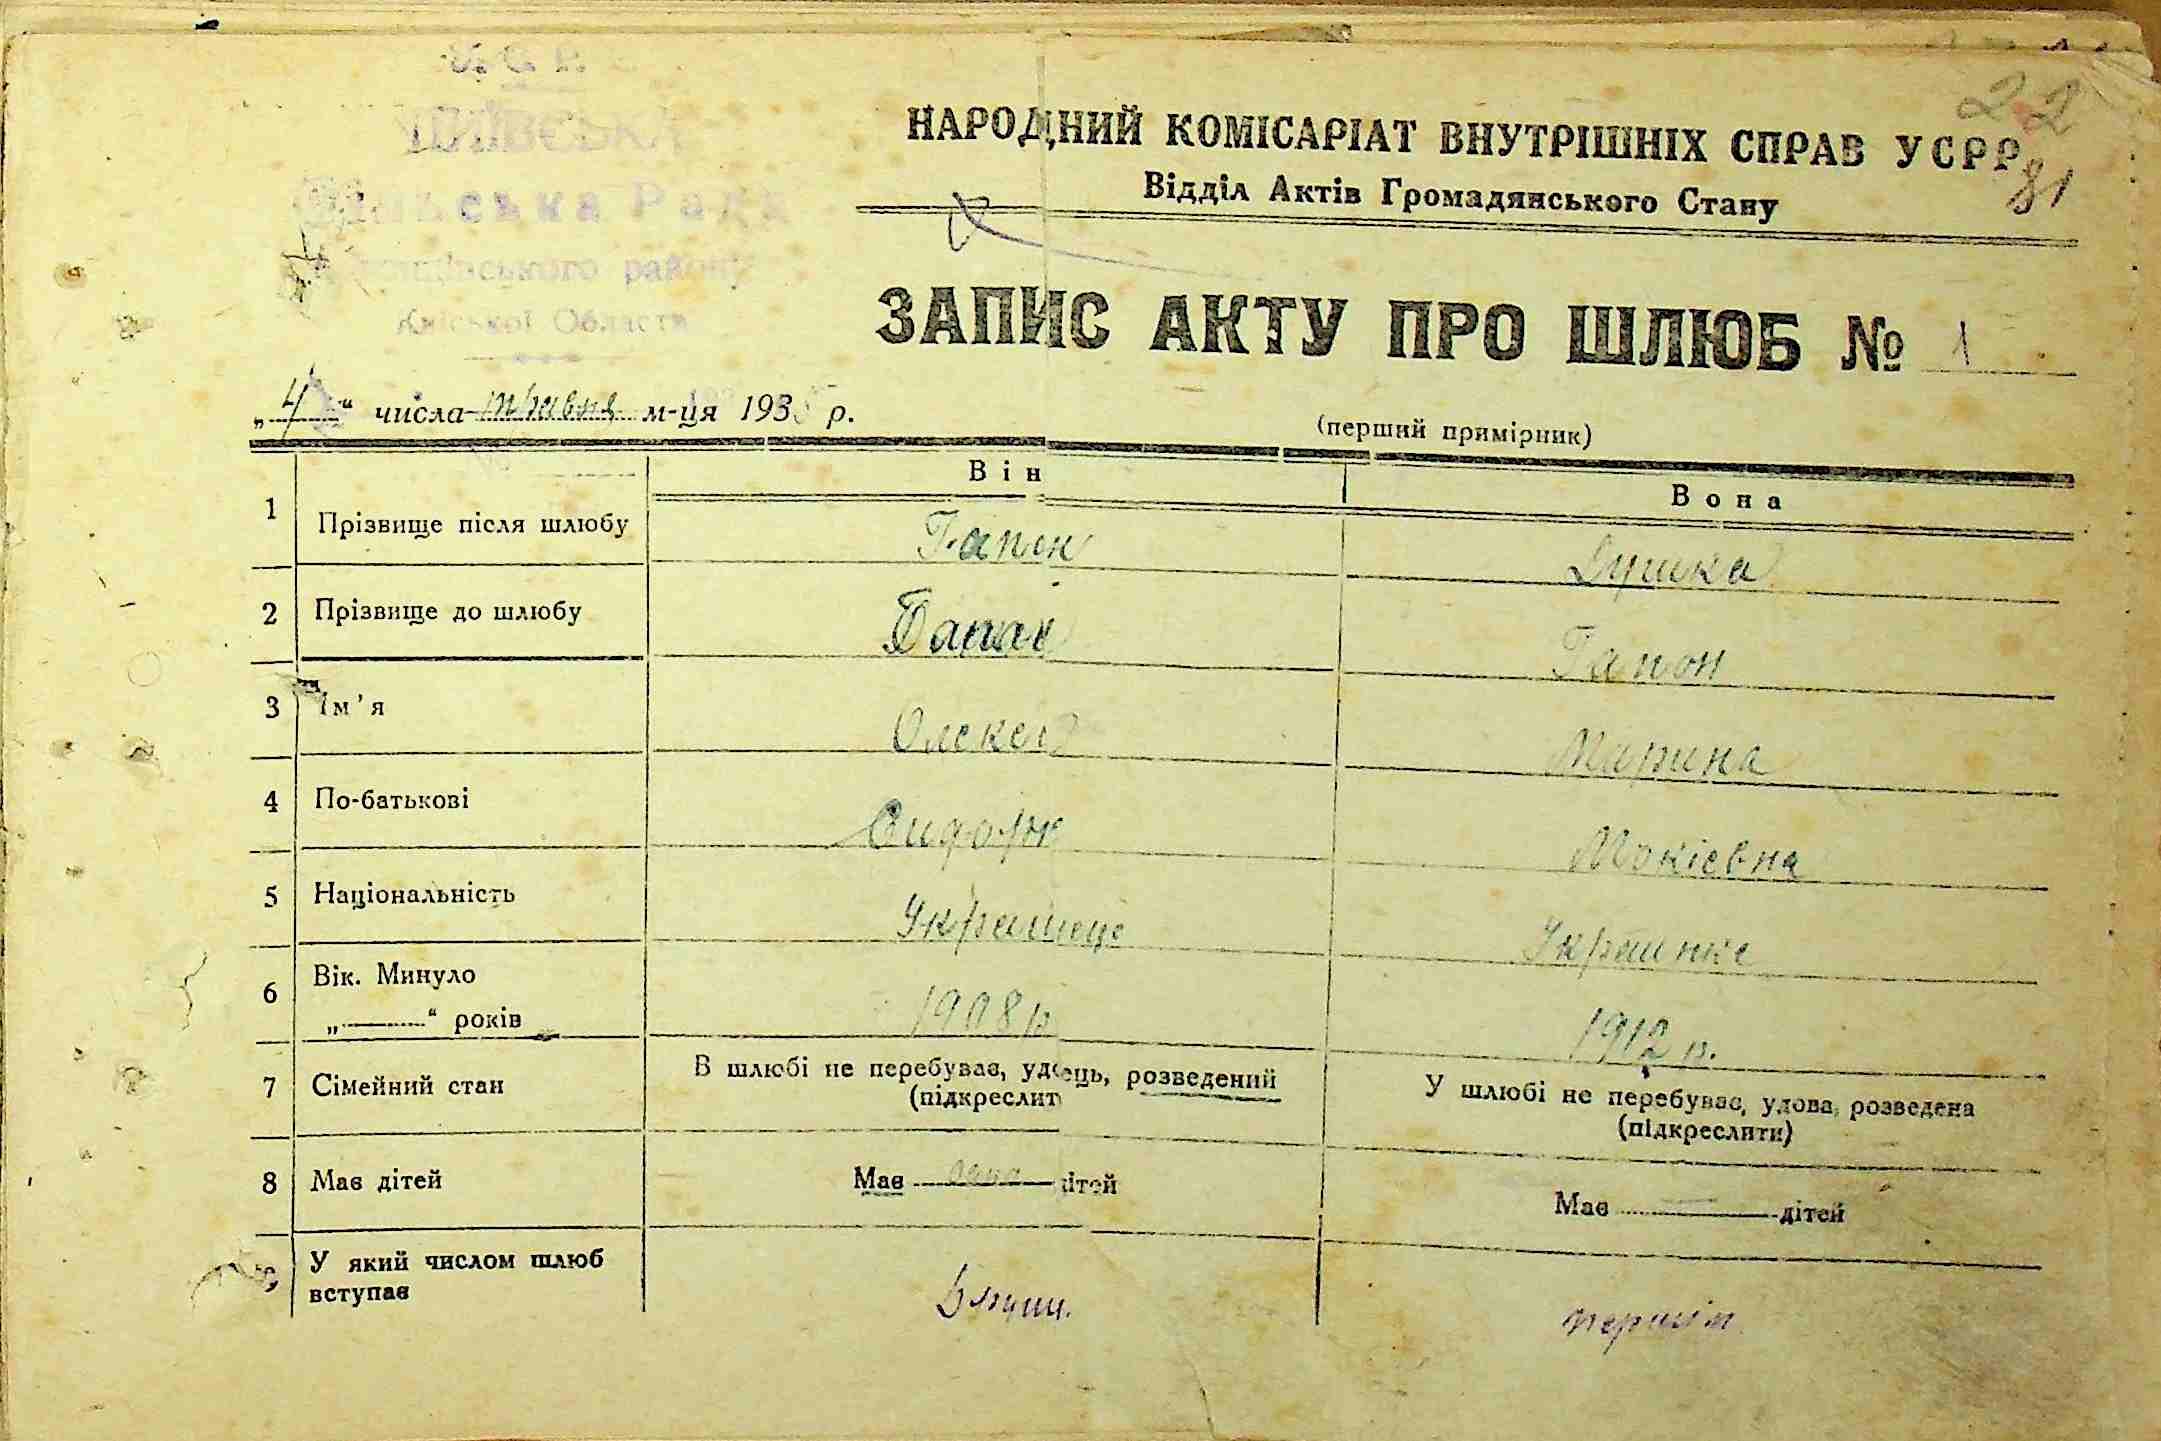 22
НАРОДНИЙ КОМІСАРІАТ ВНУТРІШНІХ СПРАВ УСРР
81
Відділ Актів Громадянського Стану
Сільська Рада
району
Київської Области
ЗАПИС АКТУ ПРО ШЛЮБ № 1
„4“ числа травня м-ця 1935 р.
(перший примірник)
Він
Вона
1 Прізвище після шлюбу Гапон Душка
2 Прізвище до шлюбу Гапон
3 Ім'я Олексій Марина
4 По-батькові Сидорів Мокієвна
5 Національність Українець Українка
6 Вік. Минуло „——“ років 1908 р 1912 р.
7 Сімейний стан В шлюбі не перебуває, удовець, розведений (підкреслит У шлюбі не перебуває, удова, розведена (підкреслити)
8 Має дітей Має одна дітей Має — дітей
9 У який числом шлюб вступає першім